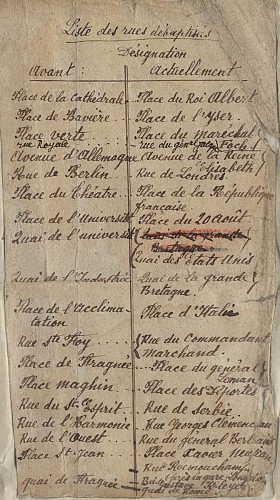 Liste des rues débaptisés
Désignation
Avant : Actuellement
Place de la Cathédrale Place du Roi Albert
Place de Bavière Place de l'Yser
Place verte Place du maréchal Foch
rue Royale rue du
Avenue d'Allemagne Avenue de la Reine Elisabeth
Rue de Berlin Rue de Londres
Place du Théatre Place de la République
française
Place de l'Université Place du 20 août
Quai de l'université Quai de la grande
Bretagne
Quai des Etats Unis
Quai de l'Industrie Quai de la grande
Bretagne
Place de l'Acclima- Place d'Italie
tation
Rue Ste Foy Rue du Commandant
marchand
Place de Fragnée Place du général
Leman
Place maghin Place des Déportés
Rue du St Esprit Rue de Serbie
Rue de l'Harmonie Rue Georges Clemenceau
Rue de l'Ouest Rue du général Bertrand
Place St Jean Place Xavier Neujean
Rue Remouchamps
quai de Fragnée
quai de Rome